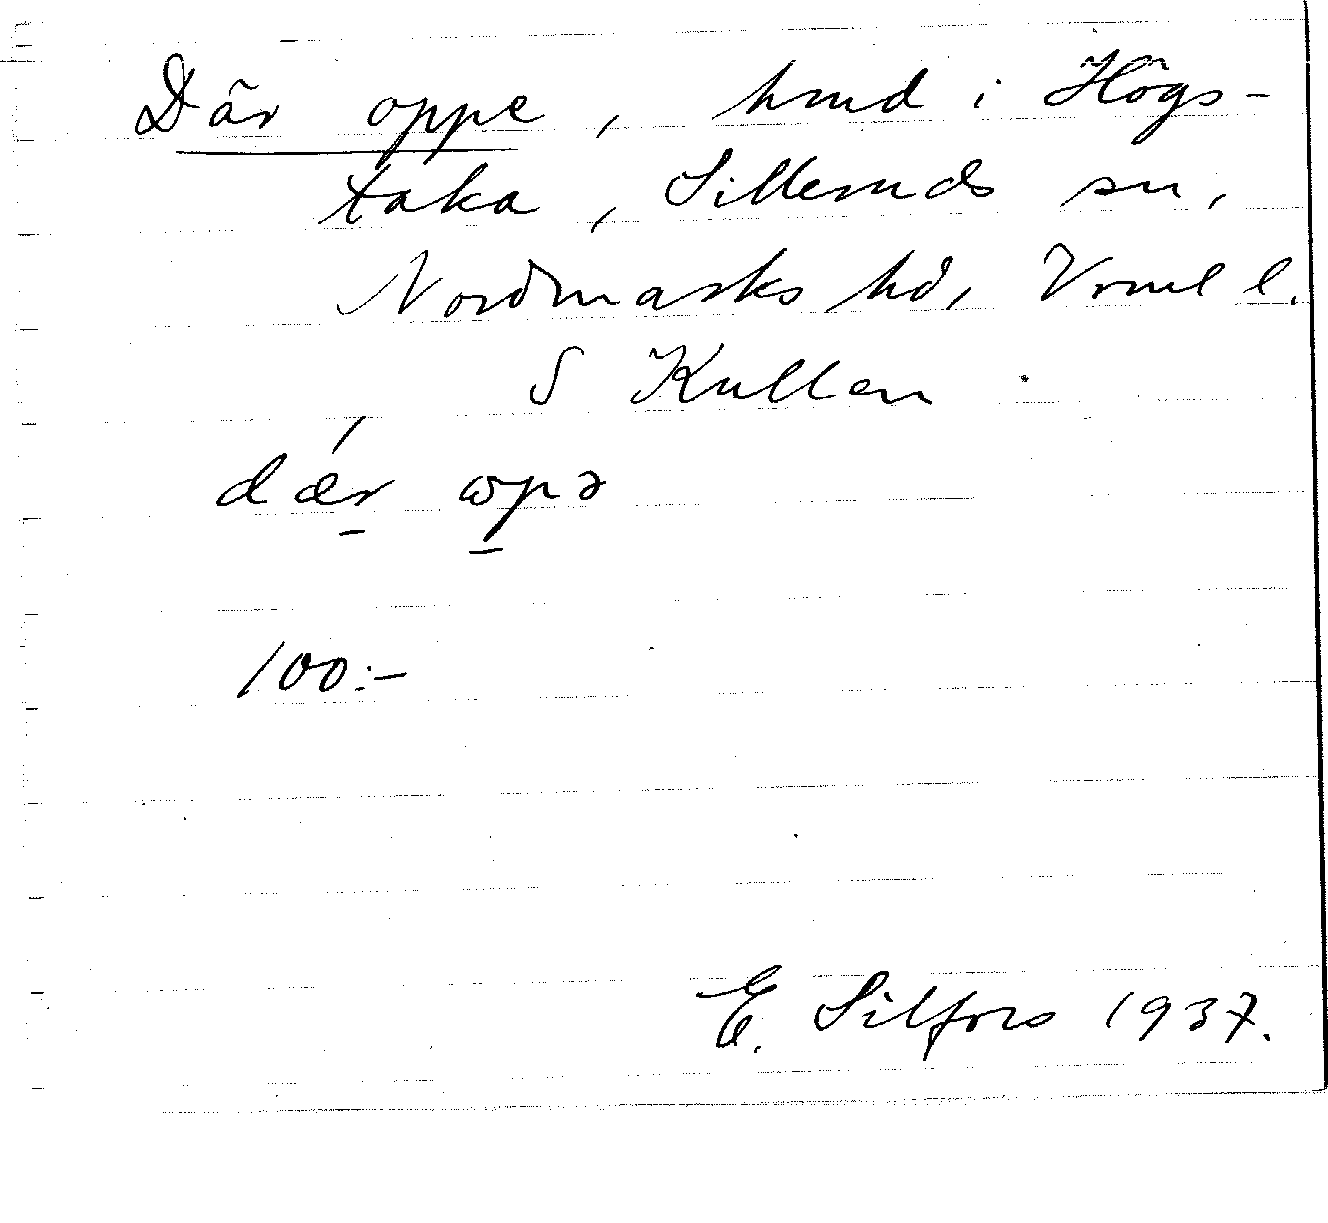 Där oppe, hmd i Högs-
taka, Silleruds sn,
Nordmarks hd, Vrml l.
S Kullen
dǽr ωpə
100:-
E. Silfors 1937.